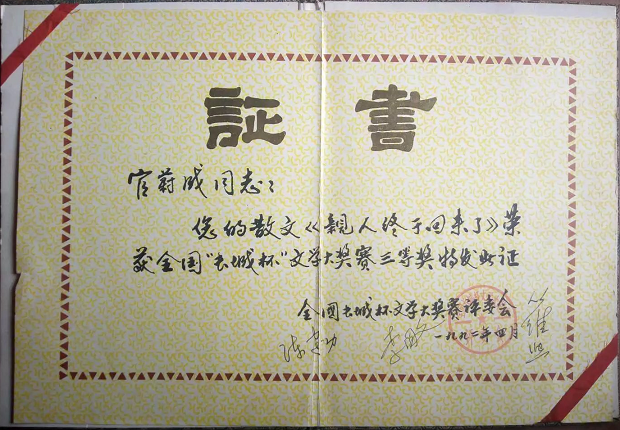 証書
官蔚成同志：
您的散文《親人终于回来了》荣
获全国"长城杯"文学大奖赛三等奖特发此证
全国长城杯文学大奖赛评委会
一九九二年四月
陈建功